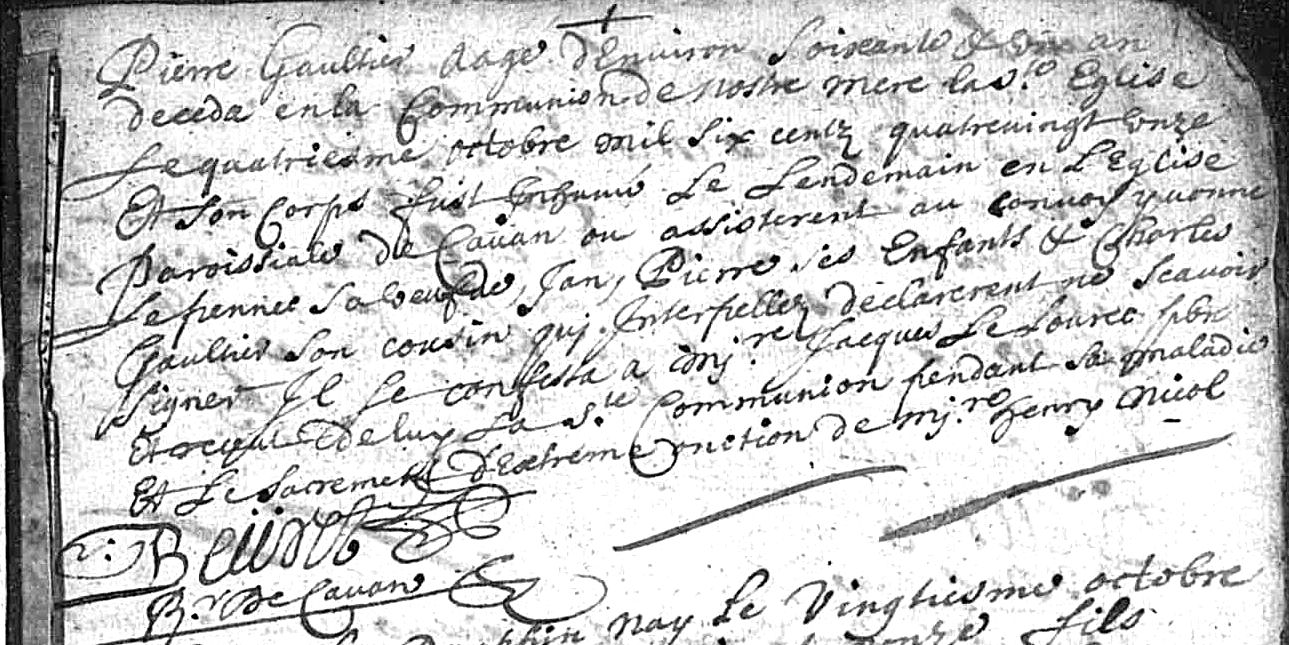 Pierre Gaultier aagé d'Environ soixante & un an
deceda en la Communion de nostre mere la s.te Eglise
Le quatriesme octobre mil six centz quatrevingt onze
Et son Corps fust Inhumé Le Lendemain en L'Eglise
Paroissiale de Cavan ou assisterent au convoy yvonne
Le pennec sa veufve, Jan, Pierre ses Enfants & Charles
Gaultier son cousin quj Interpellez declarerent ne scavoir
signer Il se confessa a mj.re Jacques Le Lourec pbre
Et receut de luy La s.te Communion pendant sa maladie
Et Le sacrement d'Extreme onction de mj.re Henry Nicol
R.r De Cavan
nay Le Vingtiesme octobre
fils